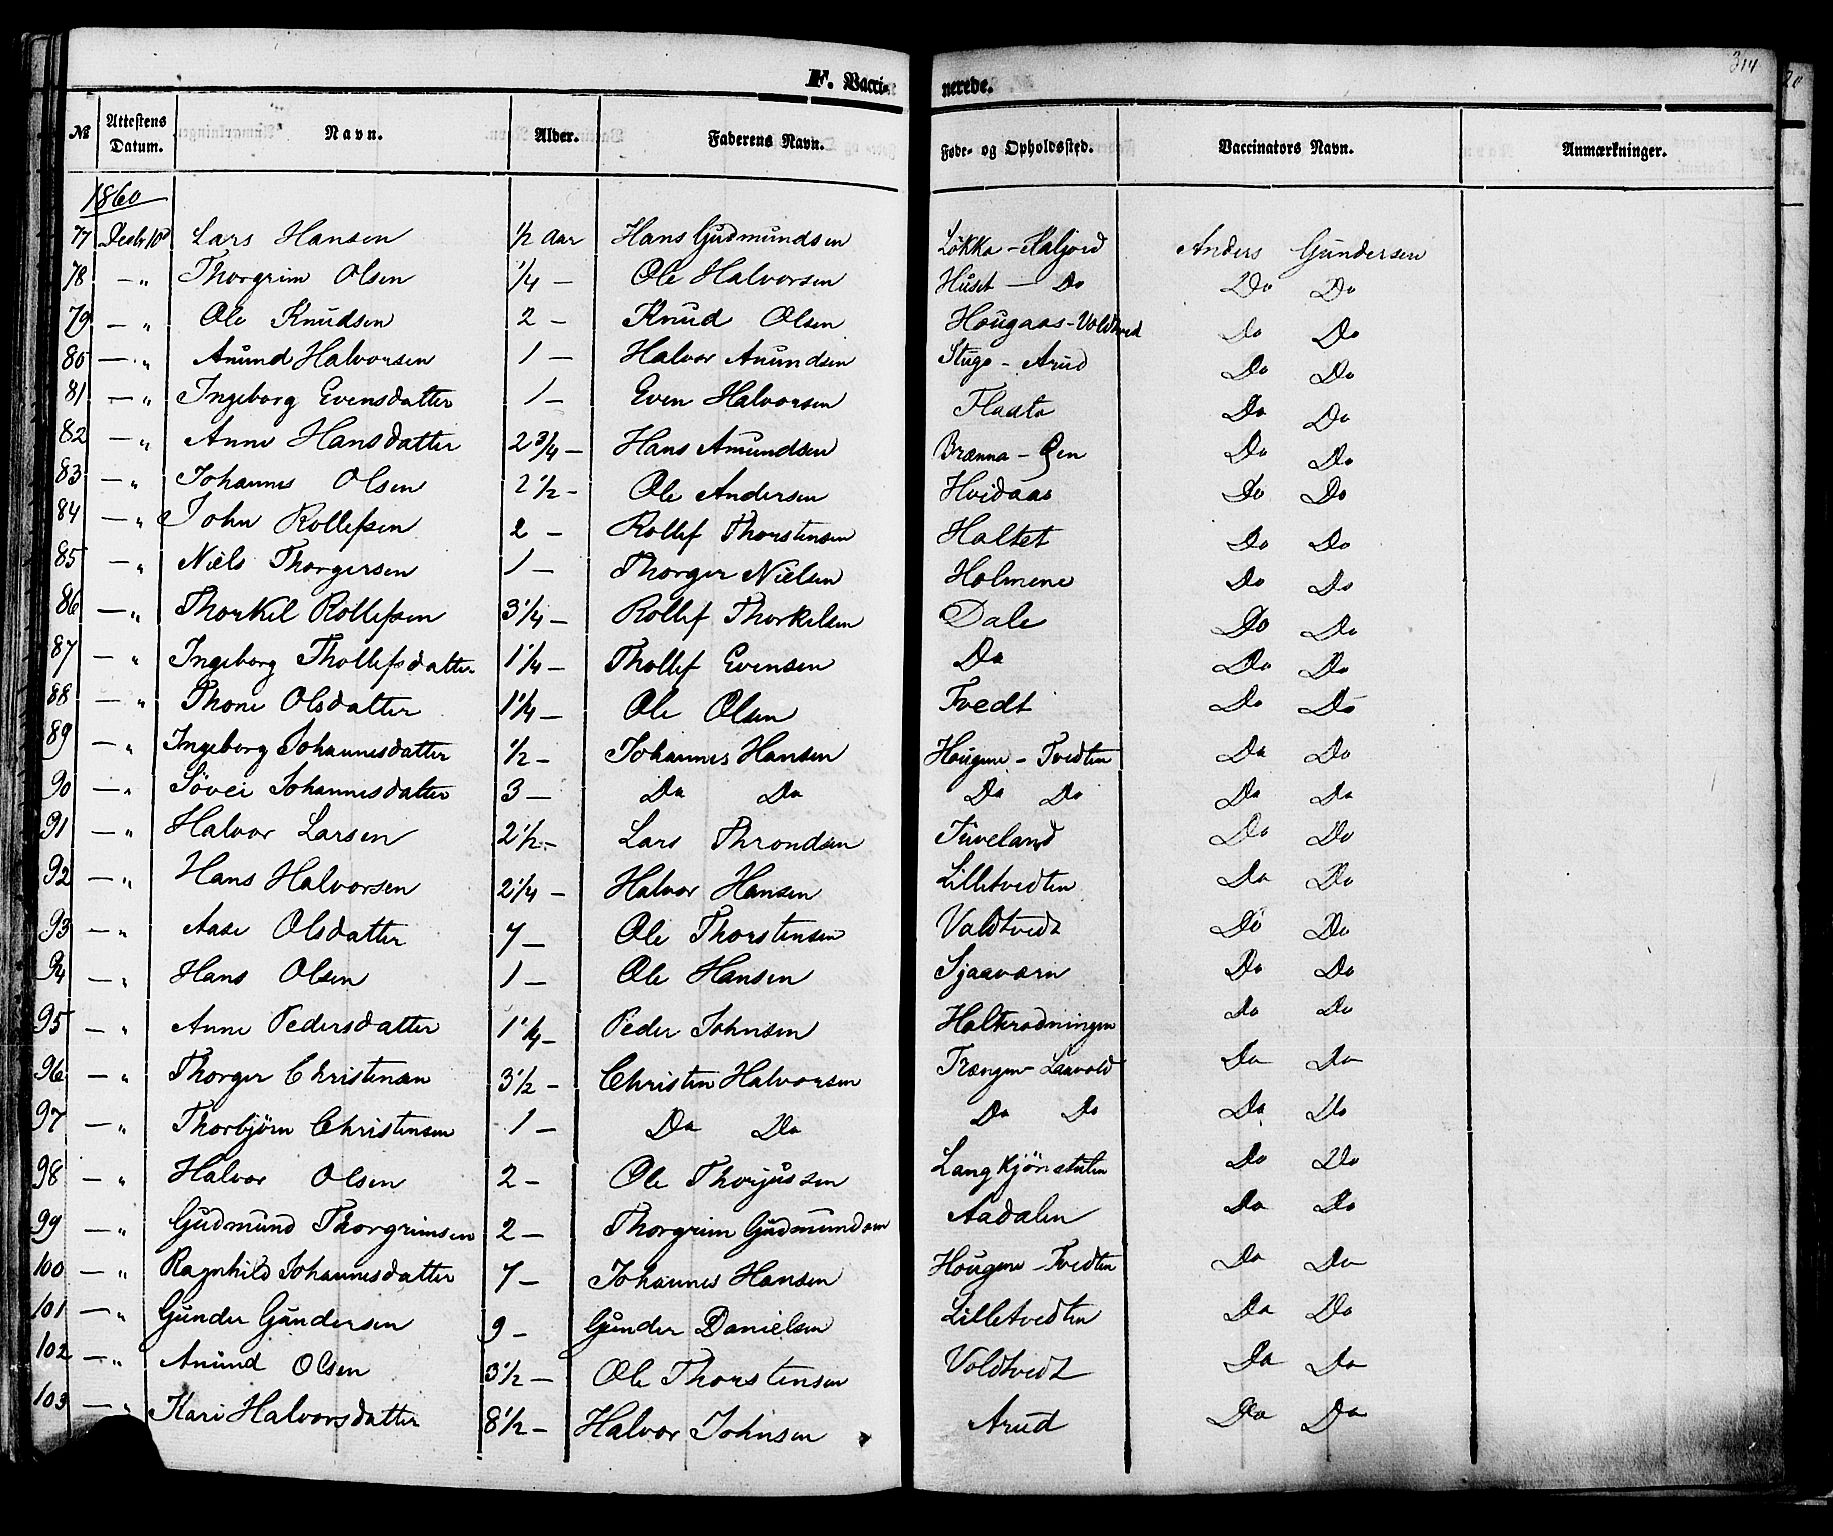 F. Vaccinerede.
314
№ Attestens Datum. Navn. Alder. Faderens Navn. Føde- og Opholdssted. Vaccinators Navn. Anmærkninger.
1860
77 Decbr 10de Lars Hansen 1/2 Aar Hans Gudmundsen Løkka - Saljord Anders Gundersen
78 — " Thorgrim Olsen 1/4 — Ole Halvorsen Huset — Do Do Do
79 — " Ole Knudsen 2 — Knud Olsen Hougaas - Voldtved Do Do
80 — " Anund Halvorsen 1 — Halvor Anundsen Stugo - Arud Do Do
81 — " Ingeborg Evensdatter 1 — Even Halvorsen Flaata Do Do
82 — " Anne Hansdatter 2 3/4 — Hans Amundsen Brænna - Do Do
83 — " Johannes Olsen 2 1/2 - Ole Andersen Hvidaas Do Do
84 — " John Rollefsen 2 — Rollef Thorstensen Haltet Do Do
85 — " Niels Thorgersen 1 — Thorger Nielsen Holmene Do Do
86 — " Thorkel Rollefsen 3 1/4 — Rollef Thorkelsen Dale Do Do
87 — " Ingeborg Thollefsdatter 1 1/4 — Thollef Evensen Do Do Do
88 — " Thone Olsdatter 1 1/4 — Ole Olsen Tvedt Do Do
89 — " Ingeborg Johannesdatter 1/2 — Johannes Hansen Hougene - Tvedten Do Do
90 — " Søvei Johannesdatter 3 — Do Do Do Do Do Do
91 — " Halvor Larsen 2 1/2 — Lars Throndsen Tuveland Do Do
92 — " Hans Halvorsen 2 1/4 — Halvor Hansen Lilletvedten Do Do
93 — " Aase Olsdatter 7 — Ole Thorstensen Voldtvedt Do Do
94 — " Hans Olsen 1 — Ole Hansen Sjaavarn Do Do
95 — " Anne Pedersdatter 1 1/4 — Peder Johnsen Halterødningen Do Do
96 — " Thorger Christensen 3 1/2 — Christen Halvorsen Trængen - Laavold Do Do
97 — " Thorbjörn Christensen 1 — Do Do Do Do Do Do
98 — " Halvor Olsen 2 — Ole Thorjussen Langkjönstulen Do Do
99 — " Gudmund Thorgrimsen 2 — Thorgrim Gudmundsen Aadalen Do Do
100 — " Ragnhild Johannesdatter 7 — Johannes Hansen Hougene - Tvedten Do Do
101 — " Gunder Gundersen 9 — Gunder Danielsen Lilletvedten Do Do
102 — " Anund Olsen 3 1/2 — Ole Thorstensen Voldtvedt Do Do
103 — " Kari Halvorsdatter 8 1/2 — Halvor Johnsen Arud Do Do